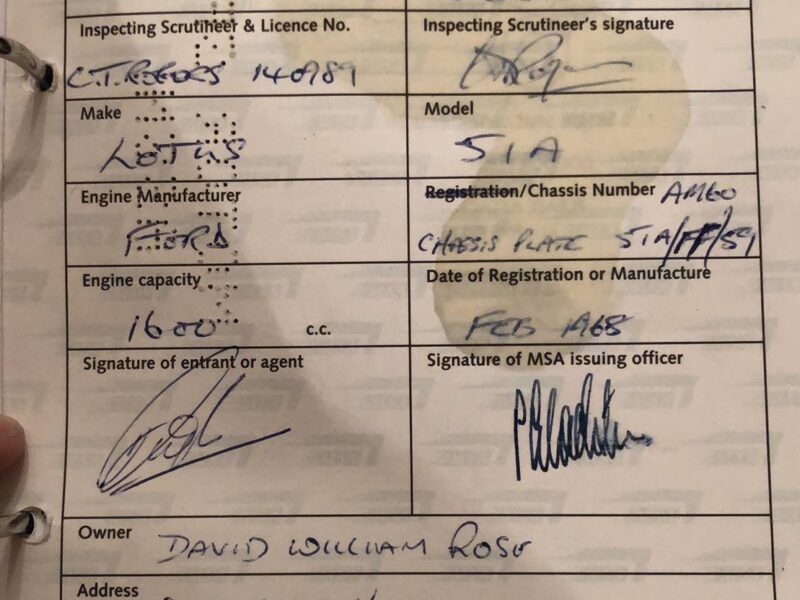 Inspecting Scrutineer & Licence No.
Inspecting Scrutineer's signature
C.T. ROGERS 140989
Make
Model
LOTUS
51A
Engine Manufacturer
Registration/Chassis Number AM60
FORD
CHASSIS PLATE 51A/FF/59
Engine capacity
Date of Registration or Manufacture
1600 c.c.
FEB 1968
Signature of entrant or agent
Signature of MSA issuing officer
Owner DAVID WILLIAM ROSE
Address